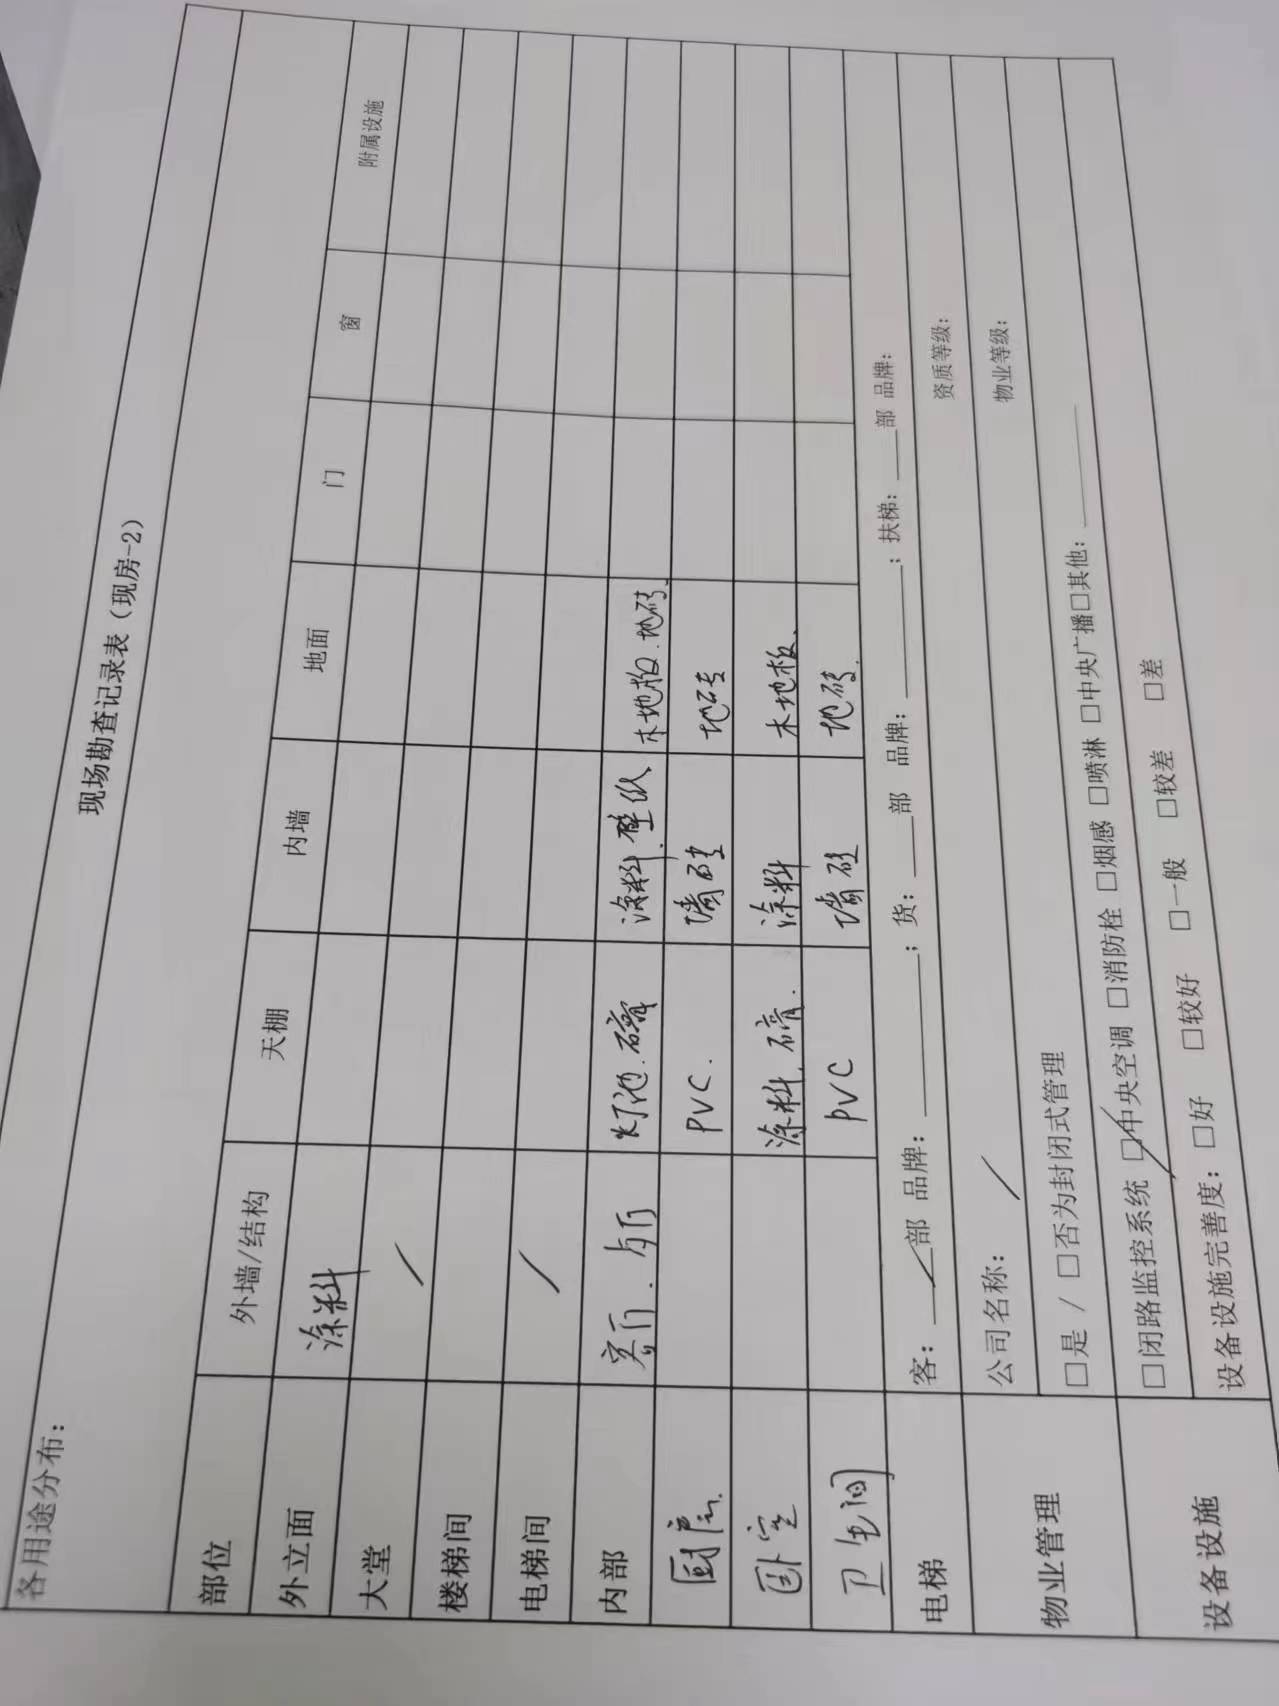 现场勘查记录表（现房-2）
各用途分布：
部位 外墙/结构 天棚 内墙 地面 门 窗 附属设施
外立面 涂料
大堂 /
楼梯间
电梯间 /
内部 客厅、 灯池、石膏 涂料、壁纸 木地板、地砖、
厨房 PVC. 墙砖 地砖
卧室 涂料、石膏. 涂料 木地板、
卫生间 PVC 墙砖 地砖.
电梯 客：___部 品牌：______；货：___部 品牌：______；扶梯：___部 品牌：
物业管理 公司名称： / 资质等级：
□是 / □否为封闭式管理 物业等级：
设备设施 □闭路监控系统 □中央空调 □消防栓 □烟感 □喷淋 □中央广播□其他：______
设备设施完善度：□好 □较好 □一般 □较差 □差